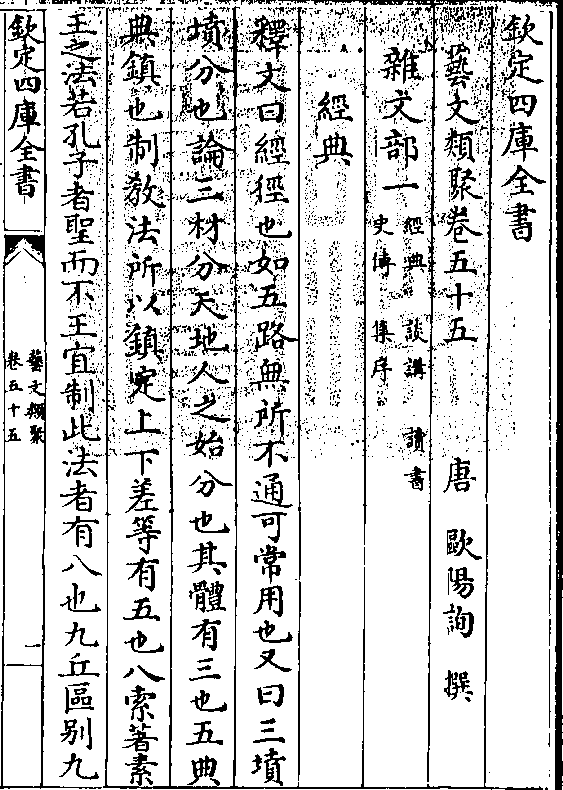 欽定四庫全書
藝文類聚卷五十五
唐 歐陽詢 撰
雜文部一 經典 談講 讀書
史傳 集序
經典
釋文曰經徑也如五路無所不通可常用也又曰三墳
墳分也論三材分天地人之始分也其體有三也五典
典鎮也制教法所以鎮定上下差等有五也八索著素
王之法若孔子者聖而不王宜制此法者有八也九丘區别九
欽定四庫全書
藝文類聚
卷五十五
一